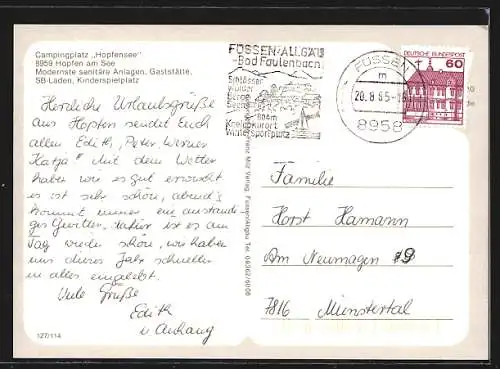 Campingplatz „Hopfensee"
8959 Hopfen am See
Modernste sanitäre Anlagen, Gaststätte,
SB-Laden, Kinderspielplatz
Herzliche Urlaubsgrüße
aus Hopfen sendet Euch
allen Edith, Peter, Werner
Katja. Mit dem Wetter
haben wir es gut erwischt
es ist sehr schön, abends
kommt immer ein anständi
ges Gewitter. Dafür ist es am
Tag wieder schön, wir haben
uns dieses Jahr schneller
in alles eingelebt.
Viele Grüße
Edith
u Anhang
127/114
Franz Milz Verlag, Füssen/Allgäu
FÜSSEN/ALLGÄU
-Bad Faulenbach-
Schlösser
Wälder
Berge
804m
Kneippkurort
Wintersportplatz
FÜSSEN 1
m
20.8.85-18
8958
DEUTSCHE BUNDESPOST
60
Familie
Horst Hamann
Am Neumagen 9
7816 Münstertal